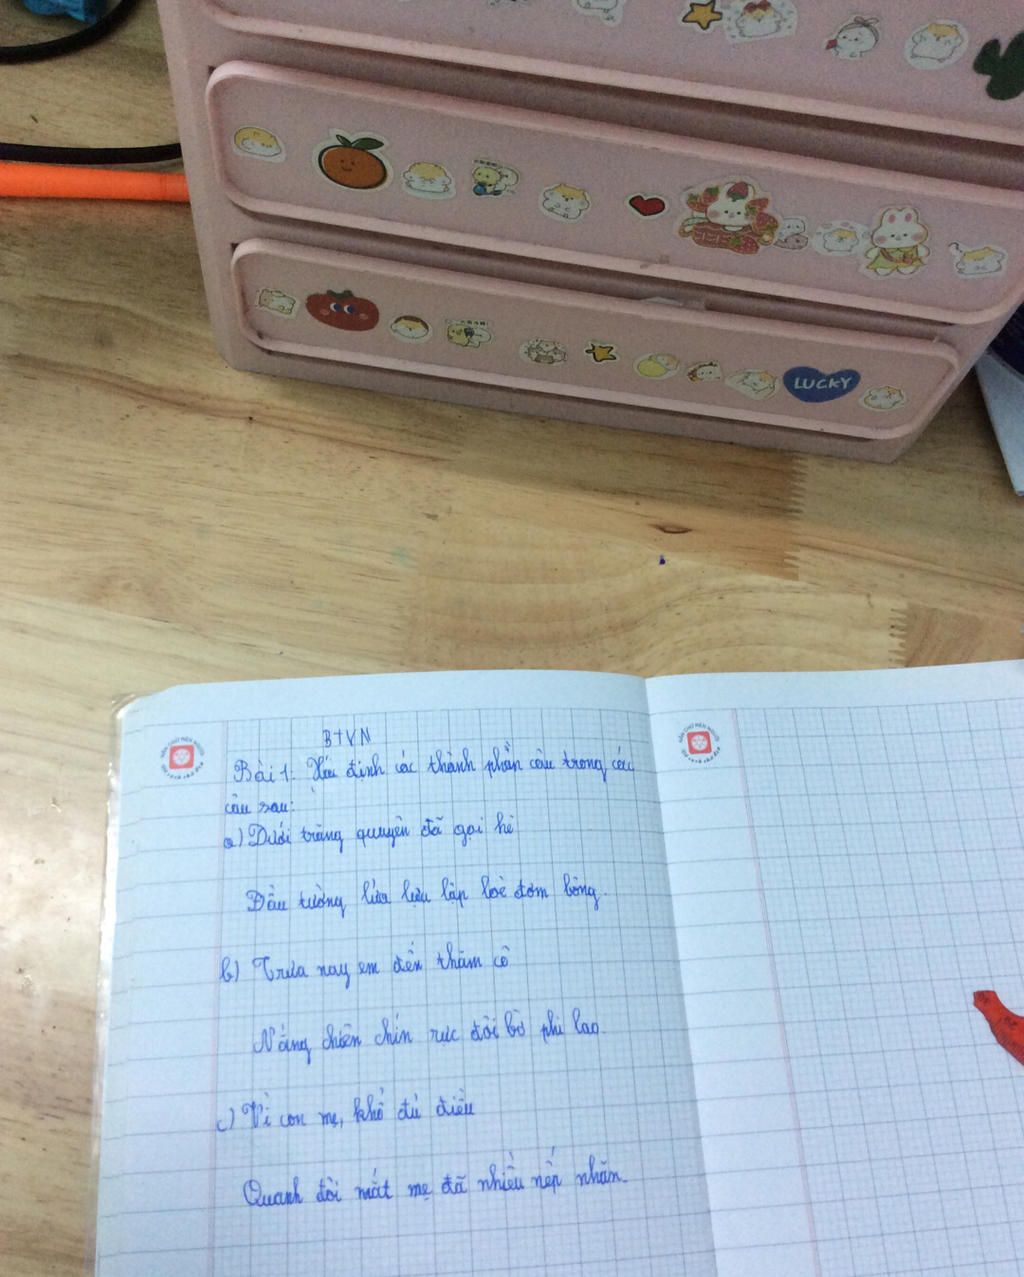 LUCKY
BTVN
Bài 1: Xác định các thành phần câu trong các
câu sau:
a) Dưới trăng quyên đã gọi hè
Đầu tường lửa lựu lập loè đơm bông.
b) Trưa nay em đến thăm cô
Nắng chiên chín rực đôi bờ phi lao.
c) Vì con mẹ, khổ đủ điều
Quanh đôi mắt mẹ đã nhiều nếp nhăn.